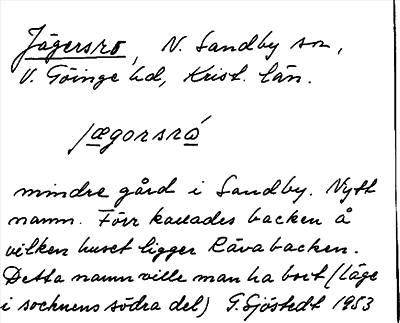 Jägersro, N. Sandby sn,
V. Göinge hd, Krist. län.
jægorsró
mindre gård i Sandby. Nytt
namn. Förr kallades backen å
vilken huset ligger Rävabacken.
Detta namn ville man ha bort (Läge
i socknens södra del) G. Sjöstedt 1953